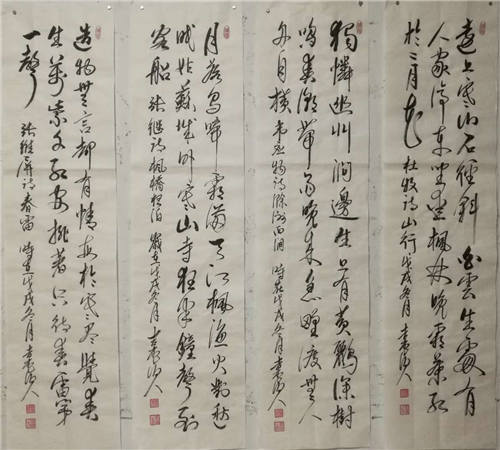 遠上寒山石徑斜白雲生處有
人家停車坐愛楓林晚霜葉紅
於二月花 杜牧詩山行戊戌冬月 山人
獨憐幽草澗邊生上有黃鸝深樹
鳴春潮帶雨晚來急野渡無人
舟自橫 韋應物詩滁州西澗 時在戊戌冬月 山人
月落烏啼霜滿天江楓漁火對愁
眠姑蘇城外寒山寺夜半鐘聲到
客船 張繼詩楓橋夜泊 歲在戊戌冬月 山人
造物無言卻有情每於寒盡覺春
生萬紫千紅安排著只待春雷第
一聲 張維屏詩春雷 時在戊戌冬月 山人